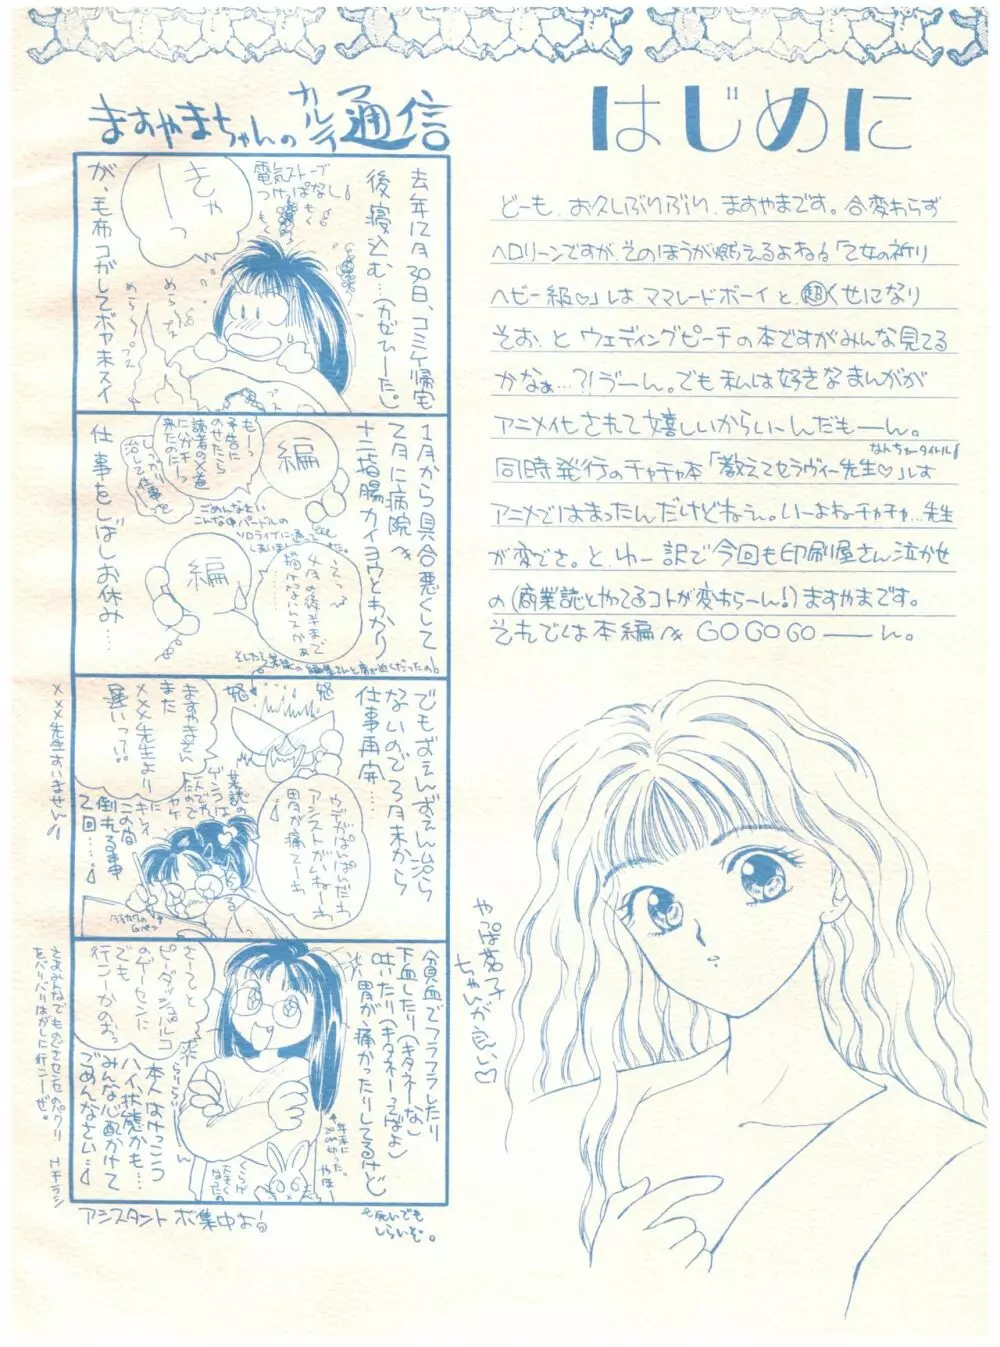 はじめに
どーも、お久しぶりぶり、ますやまです。合変わらず
ヘロリーンですが、そのほうが燃えるよね。「乙女の祈り
ヘビー級♡」は ママレードボーイと、超くせになり
そお、と ウェディングピーチの本ですがみんな見てる
かなぁ…?!う゛ーん。でも 私は好きなまんがが
アニメ化されて嬉しいからいーんだもーん。
なんちゅータイトル!
同時発行のチャチャ本「教えてセラヴィー先生♡」は
アニメではまったんだけどねぇ。いーよねチャチャ…先生
が変でさ。と、ゆー訳で今回も印刷屋さん泣かせ
の(商業誌とやってるコトが変わらーん!)ますやまです。
それでは本編へ GO GO GO ーーん。
やっぱ茗子
ちゃんが良い♡
ますやまちゃんの カルテ 通信
去年12月30日、コミケ帰宅
後、寝込む…(カゼひーた。)
電気ストーブ
つけっぱなし!
もく
もく
きゃーっ
めらっ
めらっ
ブス
が、毛布コがしてボヤ未スイ
1月から具合悪くして
2月に病院へ
十二指腸カイヨウとわかり
編
もーっ
予告に
のせたら
読者のX達
に分キーっ
来たのにーっ
しっかり
治して仕事を
ごめんなさい
こんな中パードルの
ソロライブに通って
しまいました。
編
えっ
4月の後半まで
描けないんスかぁ
仕事をしばしお休み…
そしたら某誌の編集さんと家が近くだったの!
でもずぇんずぇん治ら
ないので3月末から
仕事再開……
怒
怒
ますやまさん
また
×××先生より
遅いっ??
ウデがぱんぱんだわ
アシストがいねーわ
胃が痛てーわ
某誌の
ゲンコは
一人でれ
たので
ヤケ
に
キレイ
この間
倒れる事
2回……!
タチカワの
Gペン
×××先生すいません!!
貧血でフラフラしたり
下血したり(キタネーな)
吐いたり(キタネーってばよ)
胃が痛かったりしてるけど
さーてと
ピーダッシュパルコ
のゲーセンに
でも
行こーかのぉっ
楽
らりらりーん
本人はけっこう
ハイ状態かも…
みんな心配かけて
ごめんなさい…!
年末に
20cm切った。
やほー
くらげ
大きく
なったの
さぁみんなでものさセンセのパクリ
をバリバリはがしに行こーぜ。
アシスタント ボ集中よ!
を死いでも
しらいぞ。